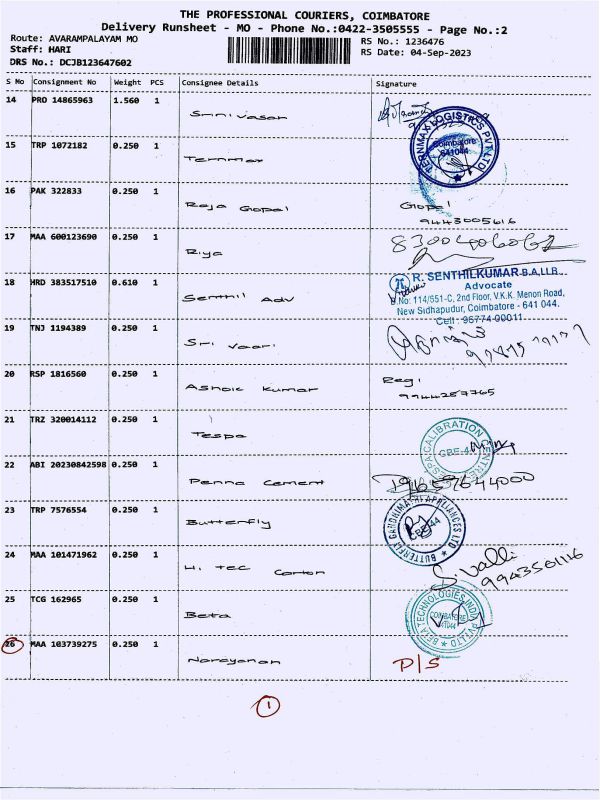 THE PROFESSIONAL COURIERS, COIMBATORE
Delivery Runsheet - MO - Phone No.:0422-3505555 - Page No.:2
Route: AVARAMPALAYAM MO
RS No.: 1236476
Staff: HARI
RS Date: 04-Sep-2023
DRS No.: DCJB123647602
S Mo Consignment No Weight PCS Consignee Details Signature
14 PRD 14865963 1.560 1
Srinivasan
TERNMAX LOGISTICS PVT LTD
Coimbatore
641044
15 TRP 1072182 0.250 1
Ternmax
16 PAK 322833 0.250 1
Raja Gopal Gopal
9443005616
17 MAA 600123690 0.250 1
Riya
18 HRD 383517510 0.610 1
Senthil Adv
R. SENTHILKUMAR B.A,LLB.,
Advocate
D.No: 114/551-C, 2nd Floor, V.K.K. Menon Road,
New Sidhapudur, Coimbatore - 641 044.
Cell : 96774 00011
19 TNJ 1194389 0.250 1
Sri Vaari
20 RSP 1816560 0.250 1
Ashok Kumar Regi
9944257765
21 TRZ 320014112 0.250 1
Tespa
TESPA CALIBRATION CENTRE
CBE-44
22 ABI 20230842598 0.250 1
Penna Cement
23 TRP 7576554 0.250 1
Butterfly
BUTTERFLY GANDHIMATHI APPLIANCES LTD
CBE-44
24 MAA 101471962 0.250 1
Hi Tec Carton
S Valli
9943501116
25 TCG 162965 0.250 1
Beta
BETA TECHNOLOGIES INDIA PVT LTD
COIMBATORE
641044
26 MAA 103739275 0.250 1
Narayanan D/S
1